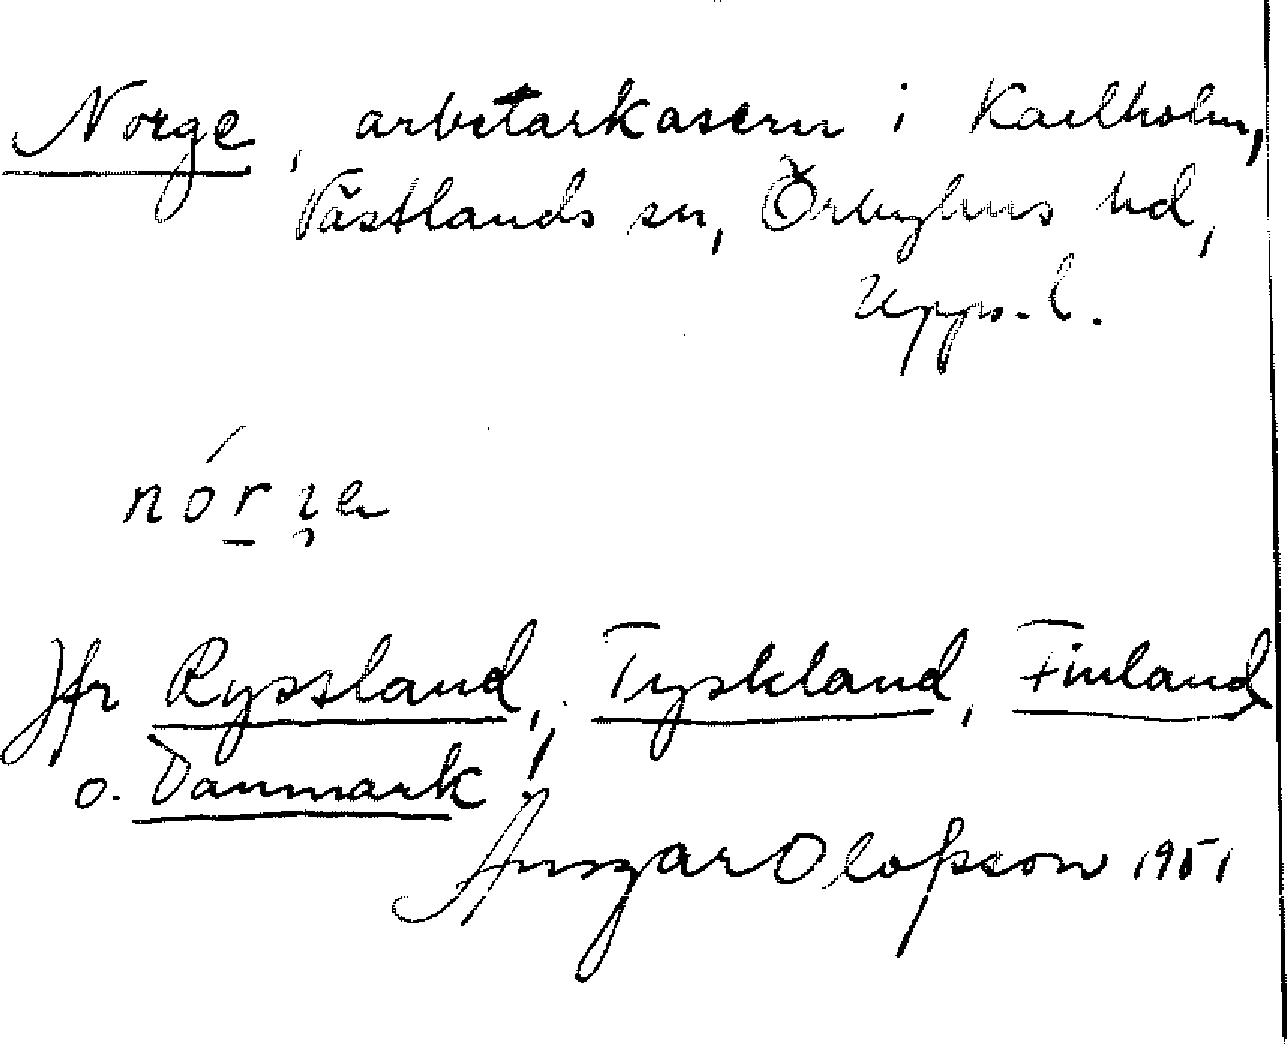 Norge, arbetarkasern i Karlholm,
Västlands sn, Örbyhus hd,
Upps. l.
Jfr Ryssland, Tyskland, Finland
o. Danmark!
Ansgar Olofsson 1951